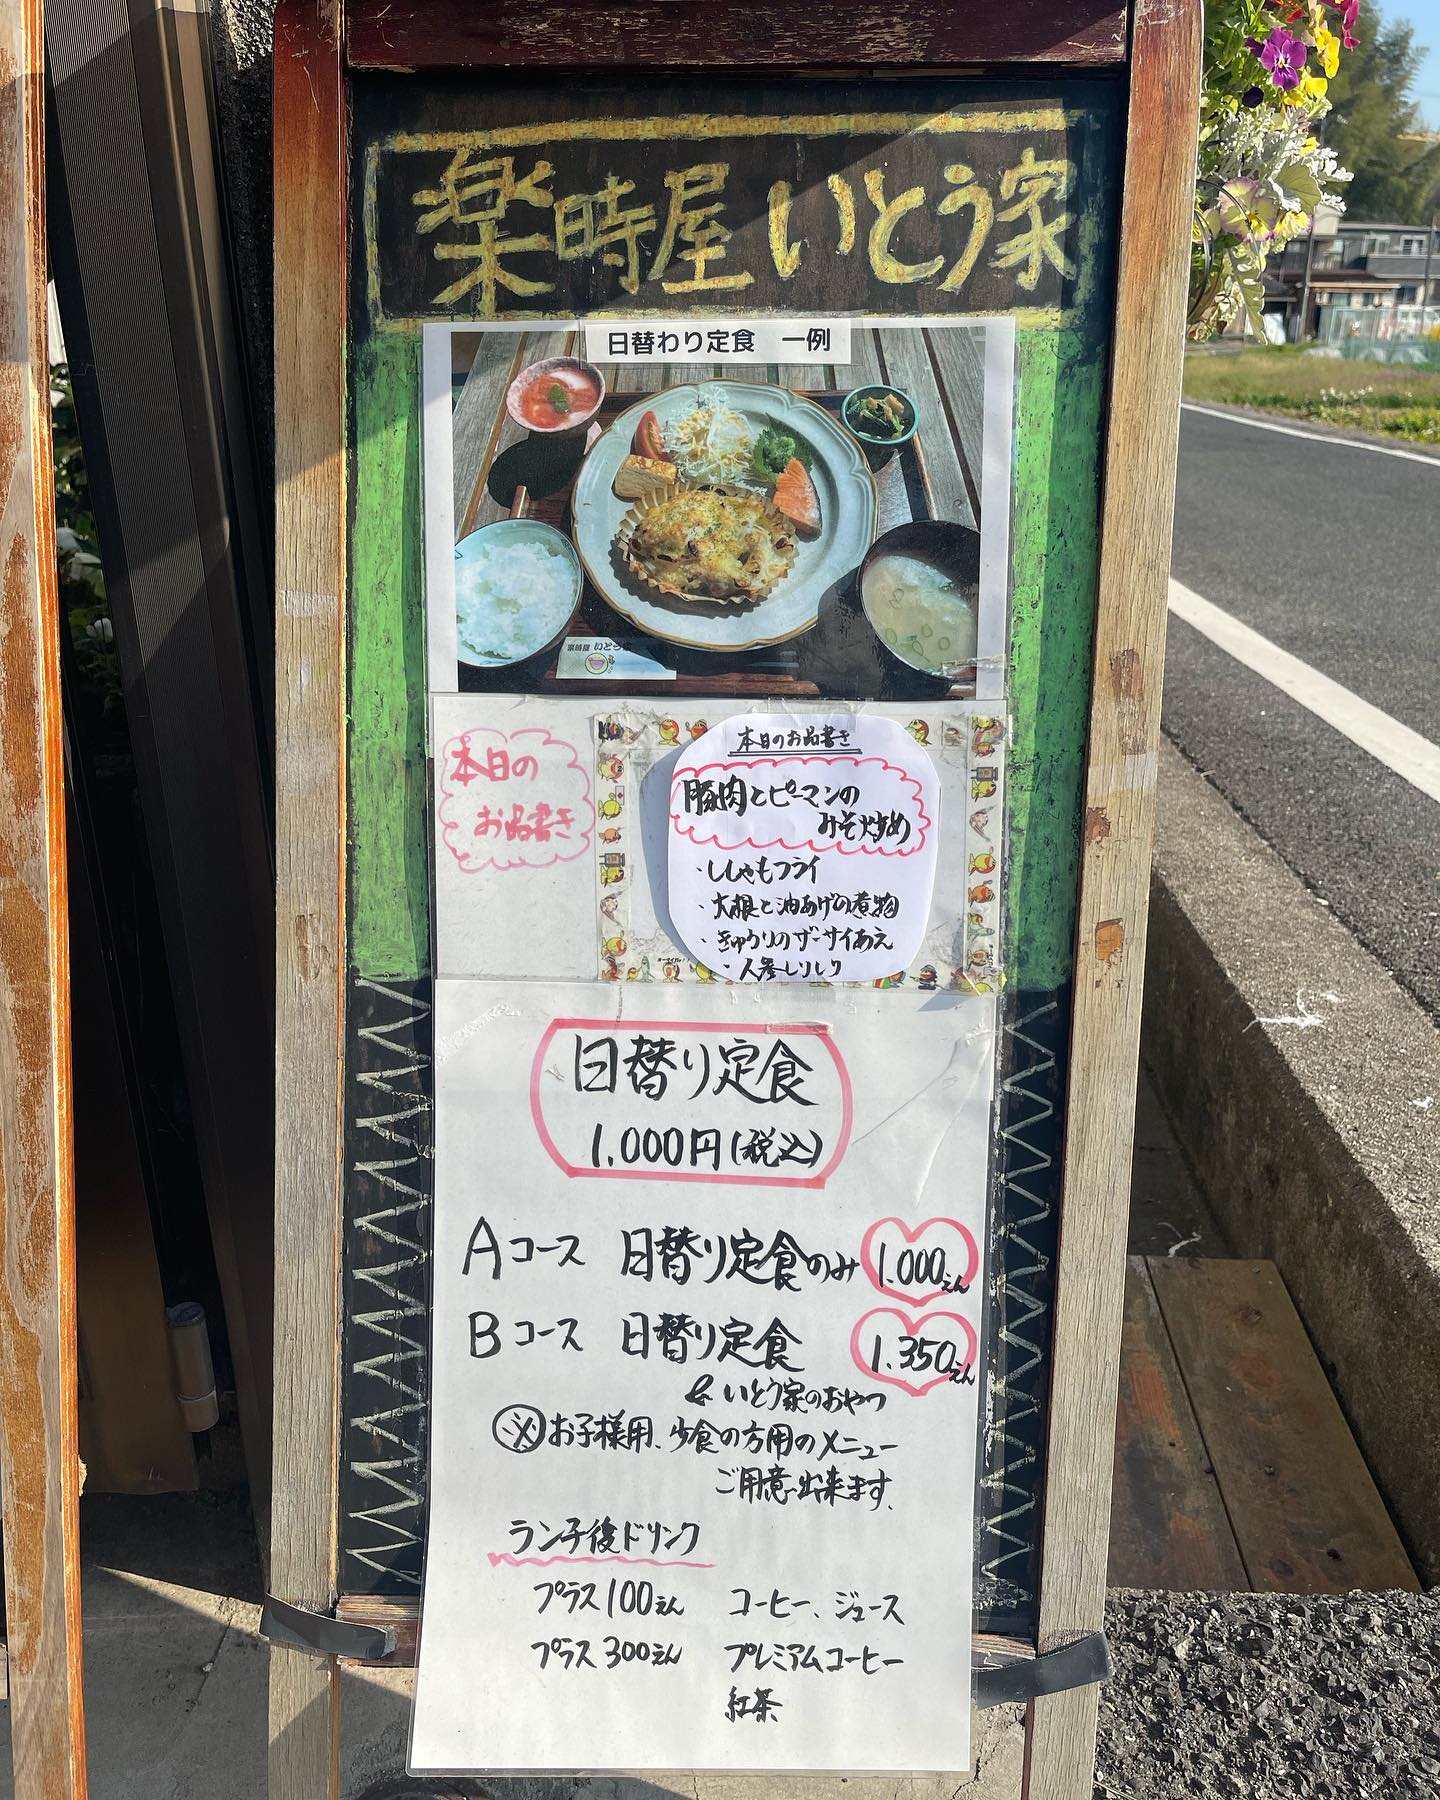 楽時屋 いとう家
日替わり定食 一例
楽時屋 いとう家
本日の
お品書き
本日のお品書き
豚肉とピーマンの
みそ炒め
・ししゃもフライ
・大根と油あげの煮物
・きゅうりのザーサイあえ
・人参しりしり
日替り定食
1.000円(税込)
Aコース 日替り定食のみ 1.000えん
Bコース 日替り定食 1.350えん
& いとう家のおやつ
※お子様用、少食の方用のメニュー
ご用意出来ます。
ランチ後ドリンク
プラス100えん コーヒー、ジュース
プラス300えん プレミアムコーヒー
紅茶